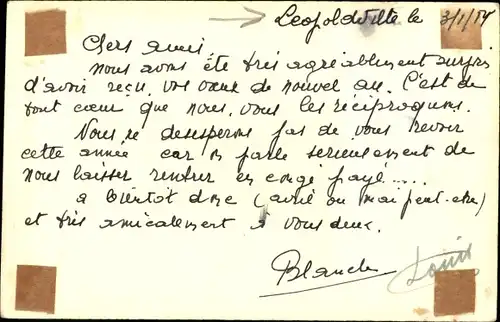 Leopoldville le 3/1/54
Chers amis.
Nous avons été très agréablement surpris
d'avoir reçu vos vœux de nouvel an. C'est de
tout cœur que nous vous les réciproquons.
Nous ne desesperons pas de vous revoir
cette année car on parle serieusement de
nous laisser rentrer en congé payé.....
a bientôt donc (avril ou mai peut-etre)
et très amicalement à vous deux.
Blanche Louis